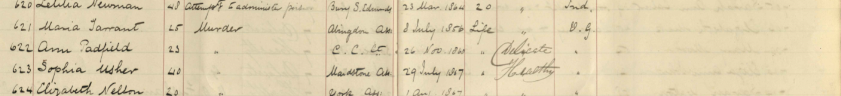 620 Letitia Newman 48 Attempt to administer poison Bury S. Edmunds 23 Mar. 1864 20 Ind.
621 Maria Tarrant 25 Murder Abingdon Ass. 8 July 1856 Life V. G.
622 Ann Padfield 23 " C. C. Ct. 26 Nov. 1860 " Delicate "
623 Sophia Usher 40 " Maidstone Ass. 29 July 1867 " Healthy "
624 Elizabeth Nelson 20 " York Ass.